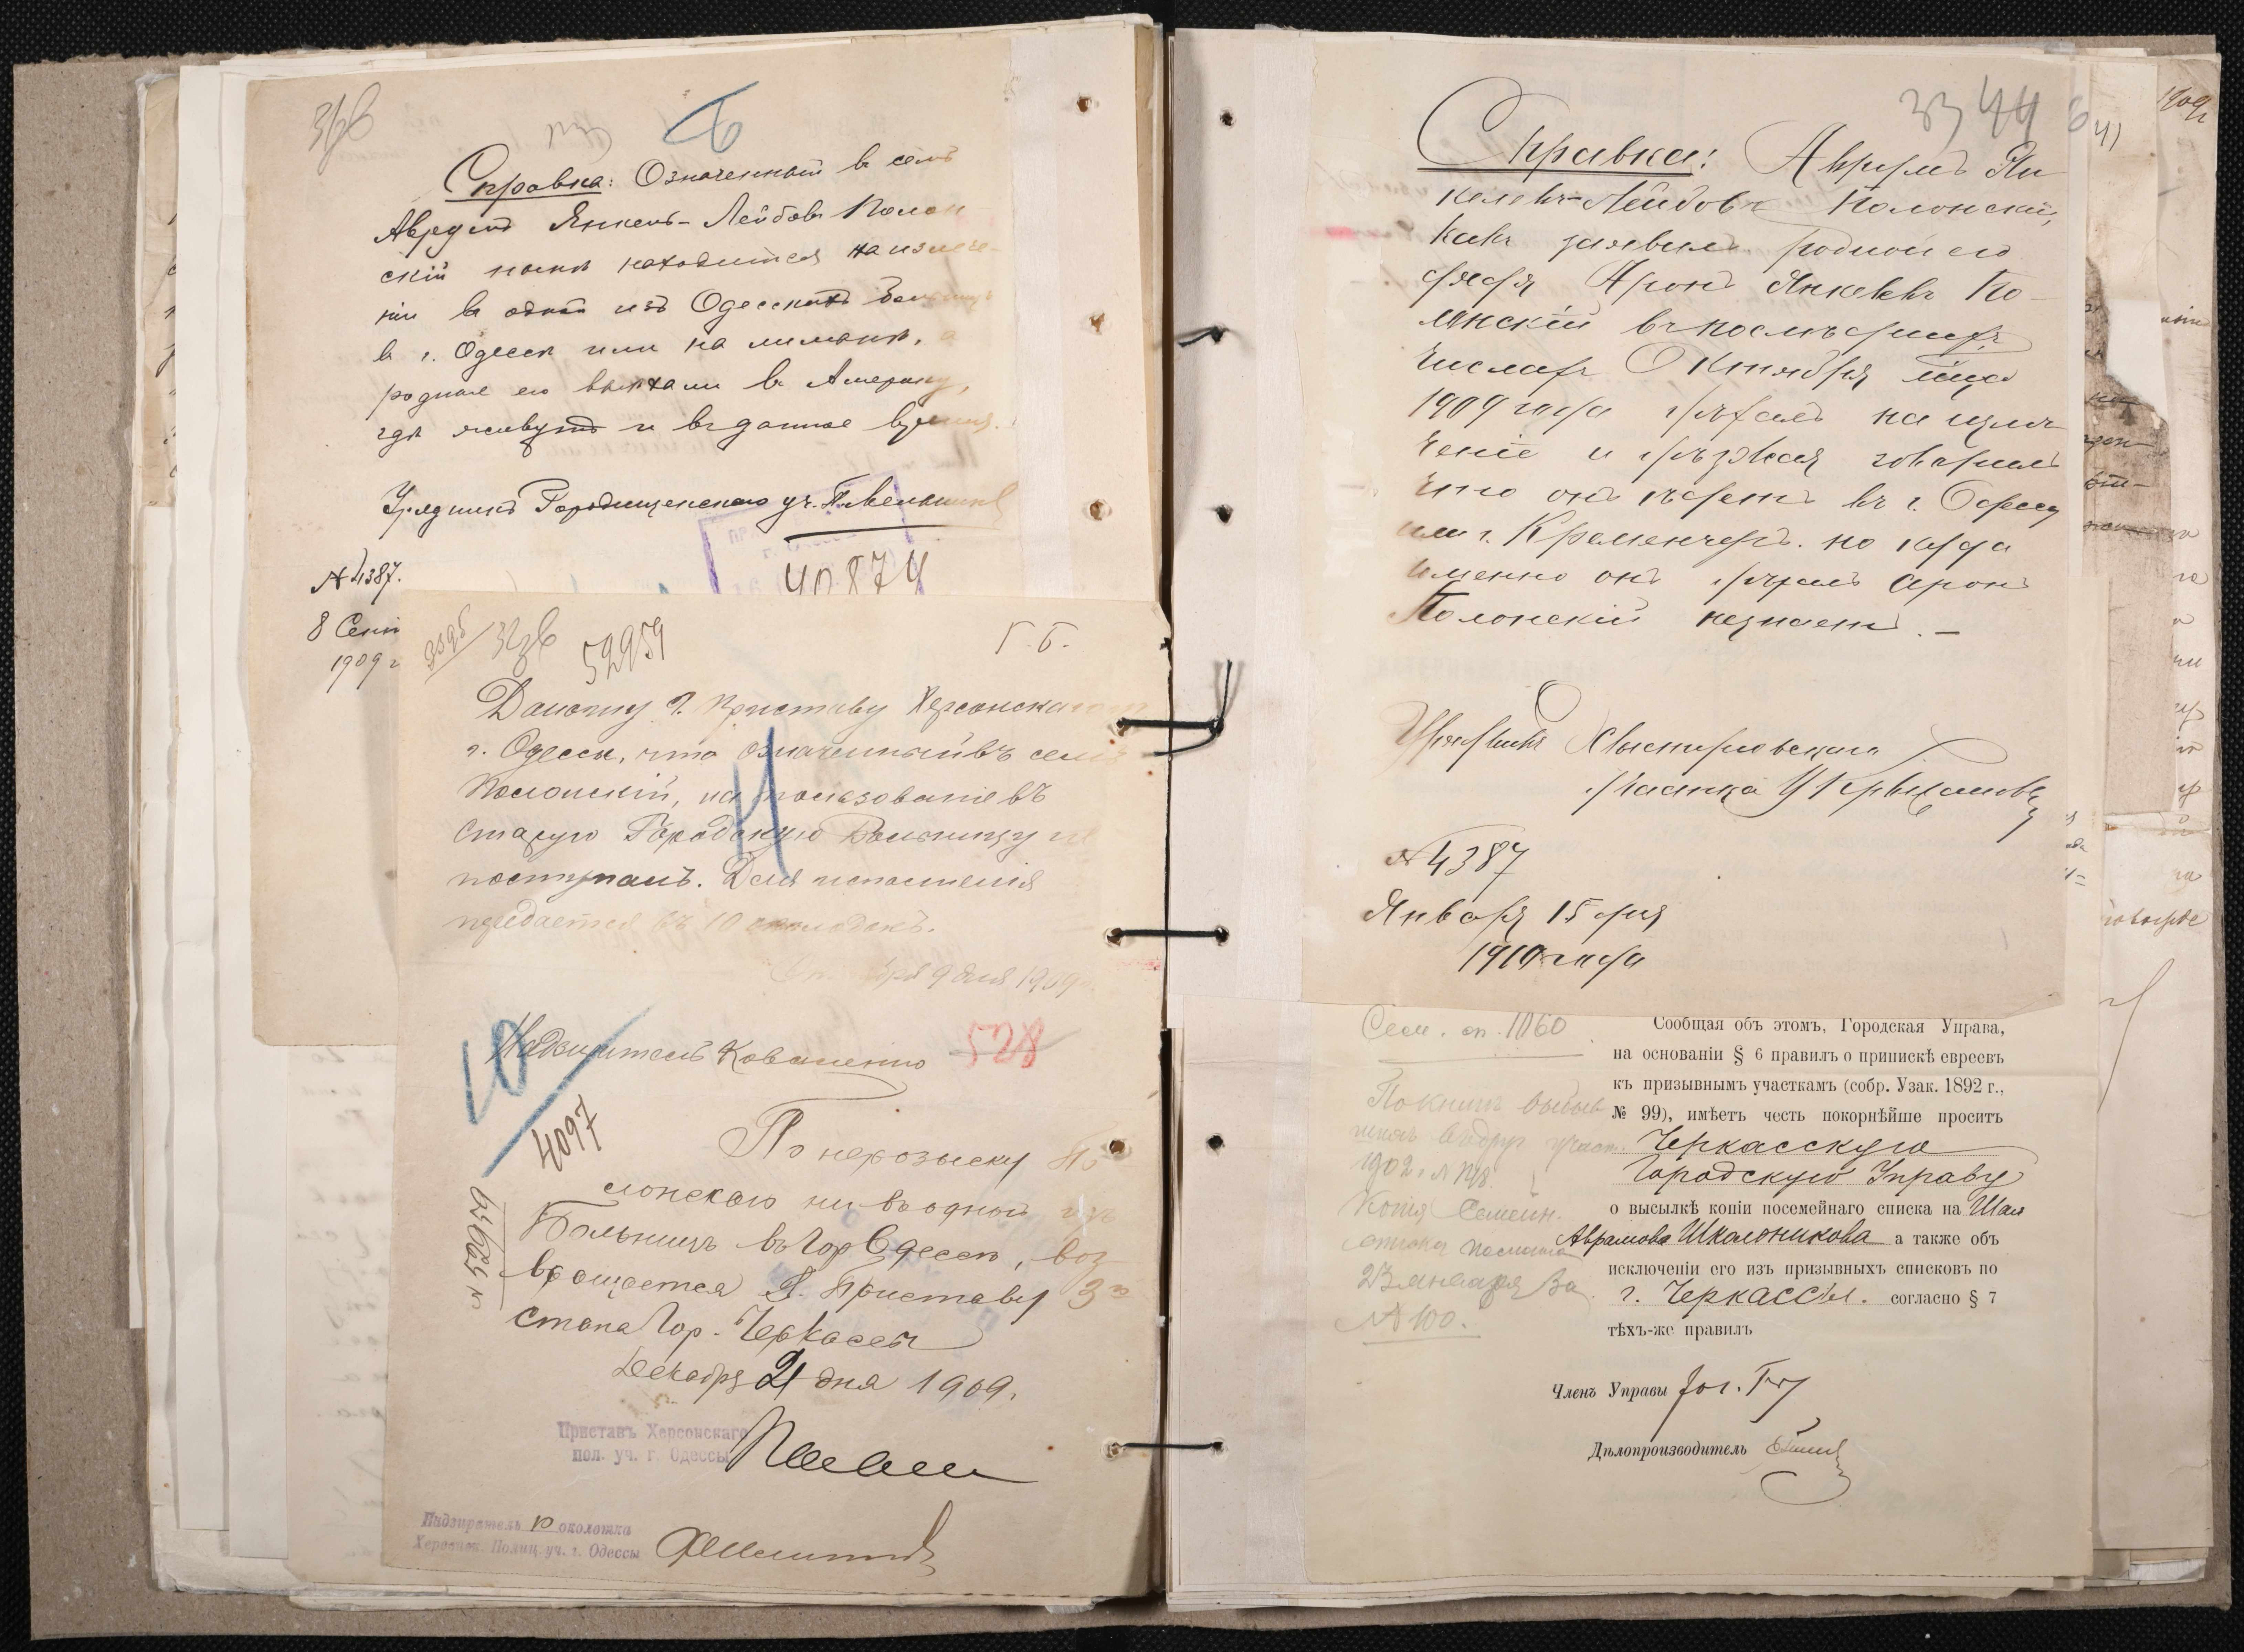 Справка: Означенный въ семъ
Аврумъ Янкель-Лейбовъ Полон
скій нынѣ находится на излѣче-
ніи въ одной изъ Одесскихъ Больницъ
въ г. Одессѣ или на лиманѣ, а
родные его выѣхали въ Америку,
гдѣ живутъ и въ данное время.
Урядникъ Городищенскаго уч.
№ 4387.
8 Сент
1909 г
40874
52959
Г.Б.
Доношу Г. Приставу Херсонскаго
г. Одессы, что означенный въ семъ
Полонскій, на пользованіе въ
Старую Городскую Больницу не
поступалъ. Для исполненія
передается въ 10 околодокъ.
9 дня 1909
Надзиратель Коваленко
528
10
4097
По нерозыску По
лонскаго ни въ одной изъ
Больницъ въ Гор Одессѣ, воз
вращается Г. Приставу 3го
стана Гор. Черкассы
Декабря 21 дня 1909.
Приставъ Херсонскаго
пол. уч. г. Одессы
Надзиратель 10 околотка
Херсонск. Полиц. уч. г. Одессы
3344
Справка: Аврумъ Ян
келевъ-Лейбовъ Полонскій,
какъ заявилъ родной его
дядя Аронъ Янкелевъ По-
лонскій въ послѣднихъ
числахъ Октября мѣс.
1909 года уѣхалъ на излѣ
ченіе и уѣзжая говорилъ
что онъ ѣдетъ въ г. Одессу
или г. Кременчугъ. но куда
именно онъ уѣхалъ Аронъ
Полонскій незнаетъ.—
Урядникъ
участка
№ 4387
Января 15 дня
1910 года
Сем. сп. 1060
1902 г.
Копія Семейн.
списка послана
23 января за
№ 100.
Сообщая объ этомъ, Городская Управа,
на основаніи § 6 правилъ о припискѣ евреевъ
къ призывнымъ участкамъ (собр. Узак. 1892 г.,
№ 99), имѣетъ честь покорнѣйше просить
Черкасскую
Городскую Управу
о высылкѣ копіи посемейнаго списка на Шая
Аврамова Школьникова а также объ
исключеніи его изъ призывныхъ списковъ по
г. Черкассы. согласно § 7
тѣхъ-же правилъ
Членъ Управы
Дѣлопроизводитель